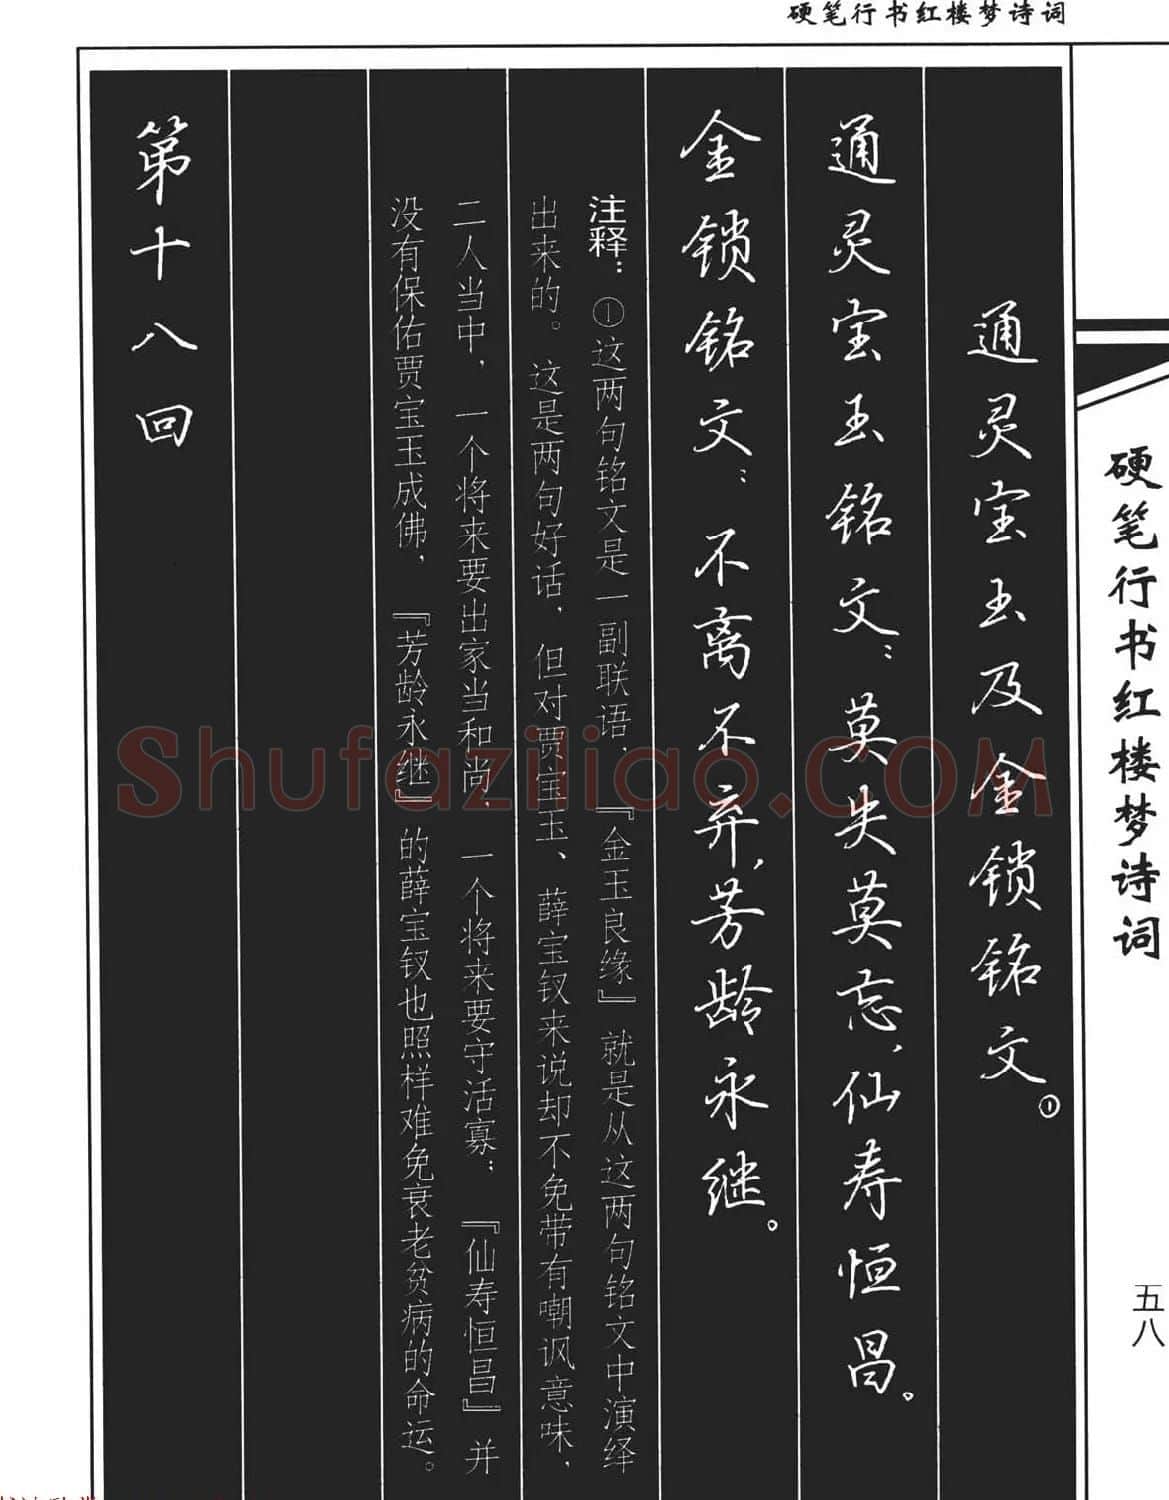 硬笔行书红楼梦诗词
通灵宝玉及金锁铭文①
通灵宝玉铭文：莫失莫忘，仙寿恒昌。
金锁铭文：不离不弃，芳龄永继。
注释：①这两句铭文是一副联语，『金玉良缘』就是从这两句铭文中演绎
出来的。这是两句好话，但对贾宝玉、薛宝钗来说却不免带有嘲讽意味，
二人当中，一个将来要出家当和尚，一个将来要守活寡；『仙寿恒昌』并
没有保佑贾宝玉成佛，『芳龄永继』的薛宝钗也照样难免衰老贫病的命运。
第十八回
硬笔行书红楼梦诗词
五八
Shufaziliao.COM